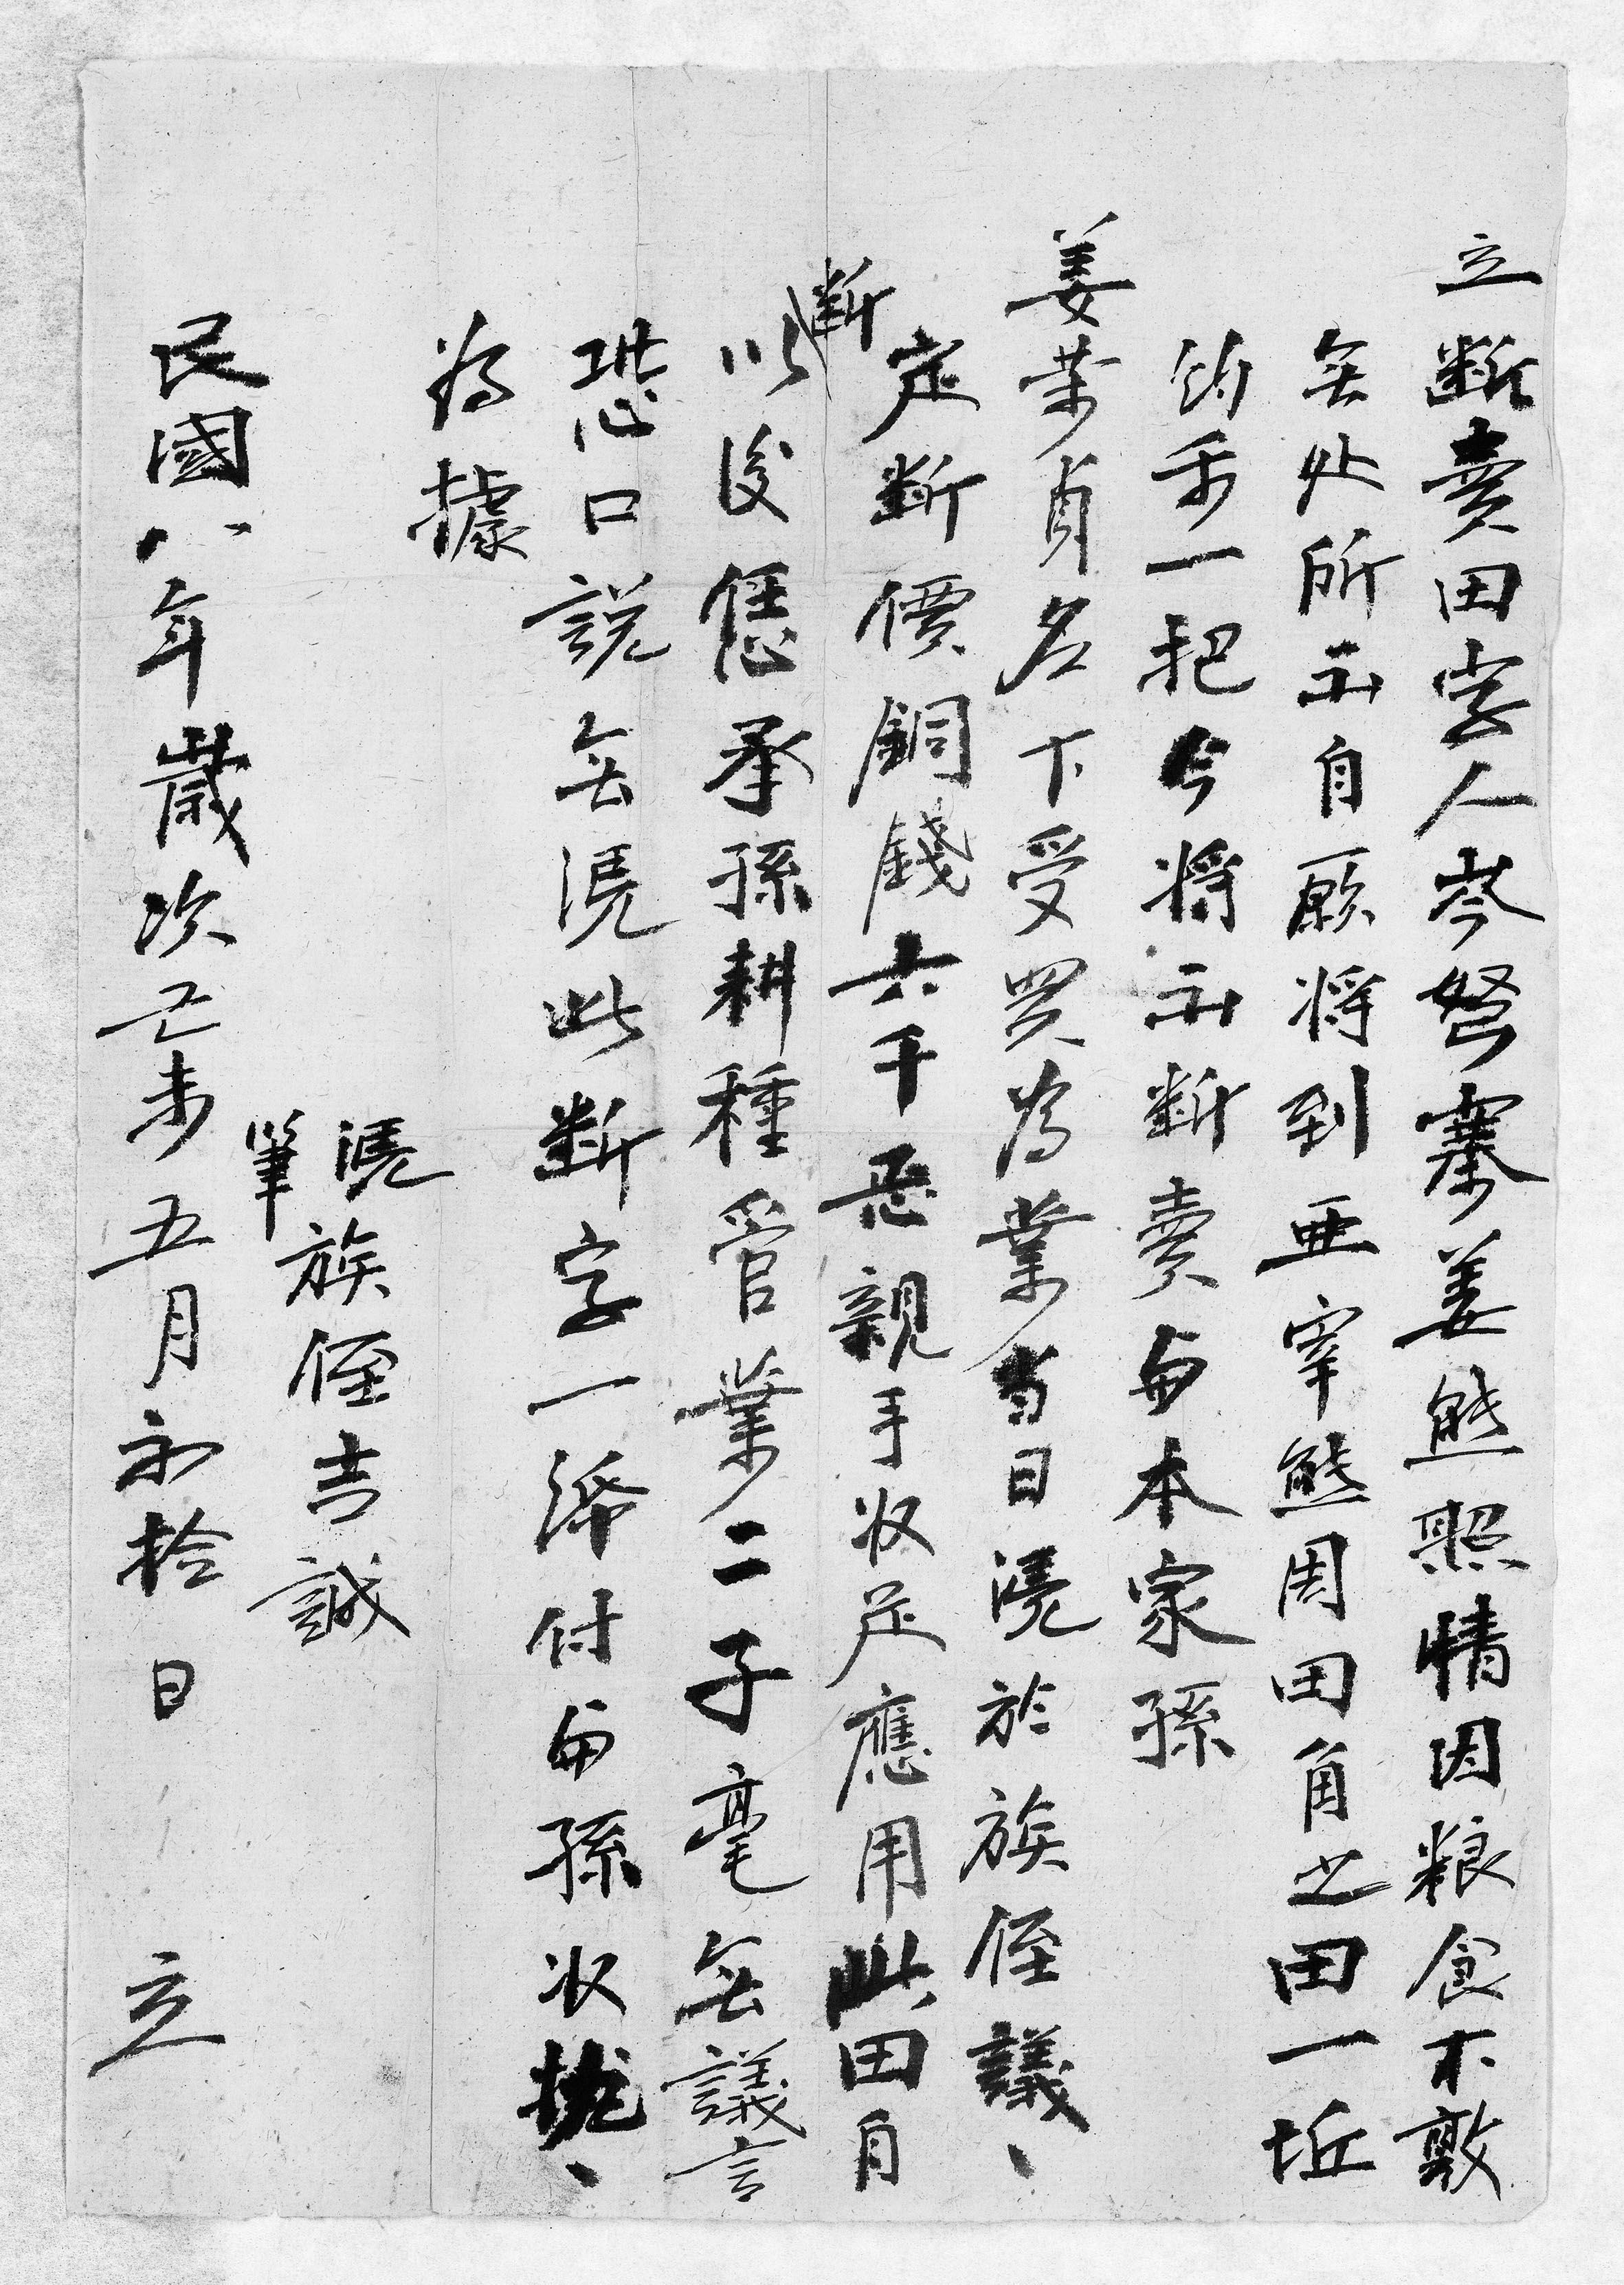 立断賣田字人岑弩寨姜熊照情因粮食不敷
無处所出自願將到亚宰熊周田角之田一坵
約禾一把今將出断賣与本家孫
姜業貞名下受買為業當日凴於族侄議、
定断價銅錢六千㤙親手收足應用此田自断
以後恁承孫耕種管業二子毫無議言
恐口說無凴此断字一紙付与孫收执、
為據
凴筆族侄吉誠
民國八年歲次己未五月初拾日 立